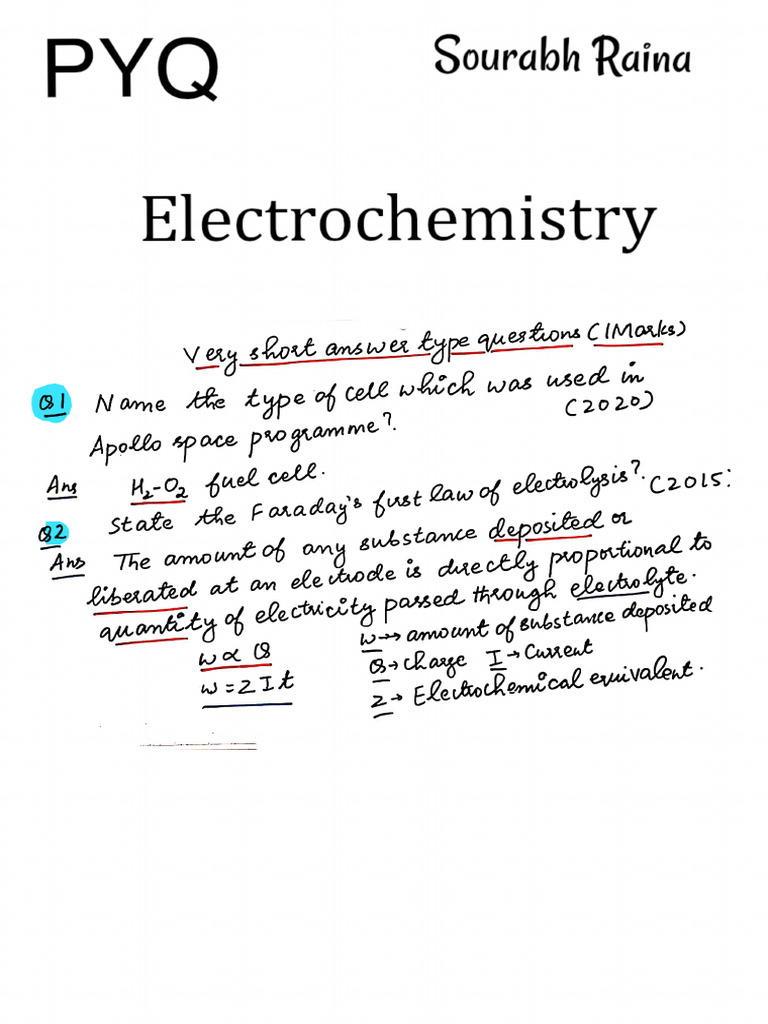 PYQ
Sourabh Raina
Electrochemistry
Very short answer type questions (1Marks)
Q1 Name the type of cell which was used in
Apollo space programme? (2020)
Ans H₂-O₂ fuel cell.
Q2 State the Faraday's first law of electrolysis? (2015:
Ans The amount of any substance deposited or
liberated at an electrode is directly proportional to
quantity of electricity passed through electrolyte.
w ∝ Q
w = Z I t
w → amount of substance deposited
Q → charge I → Current
Z → Electrochemical equivalent.